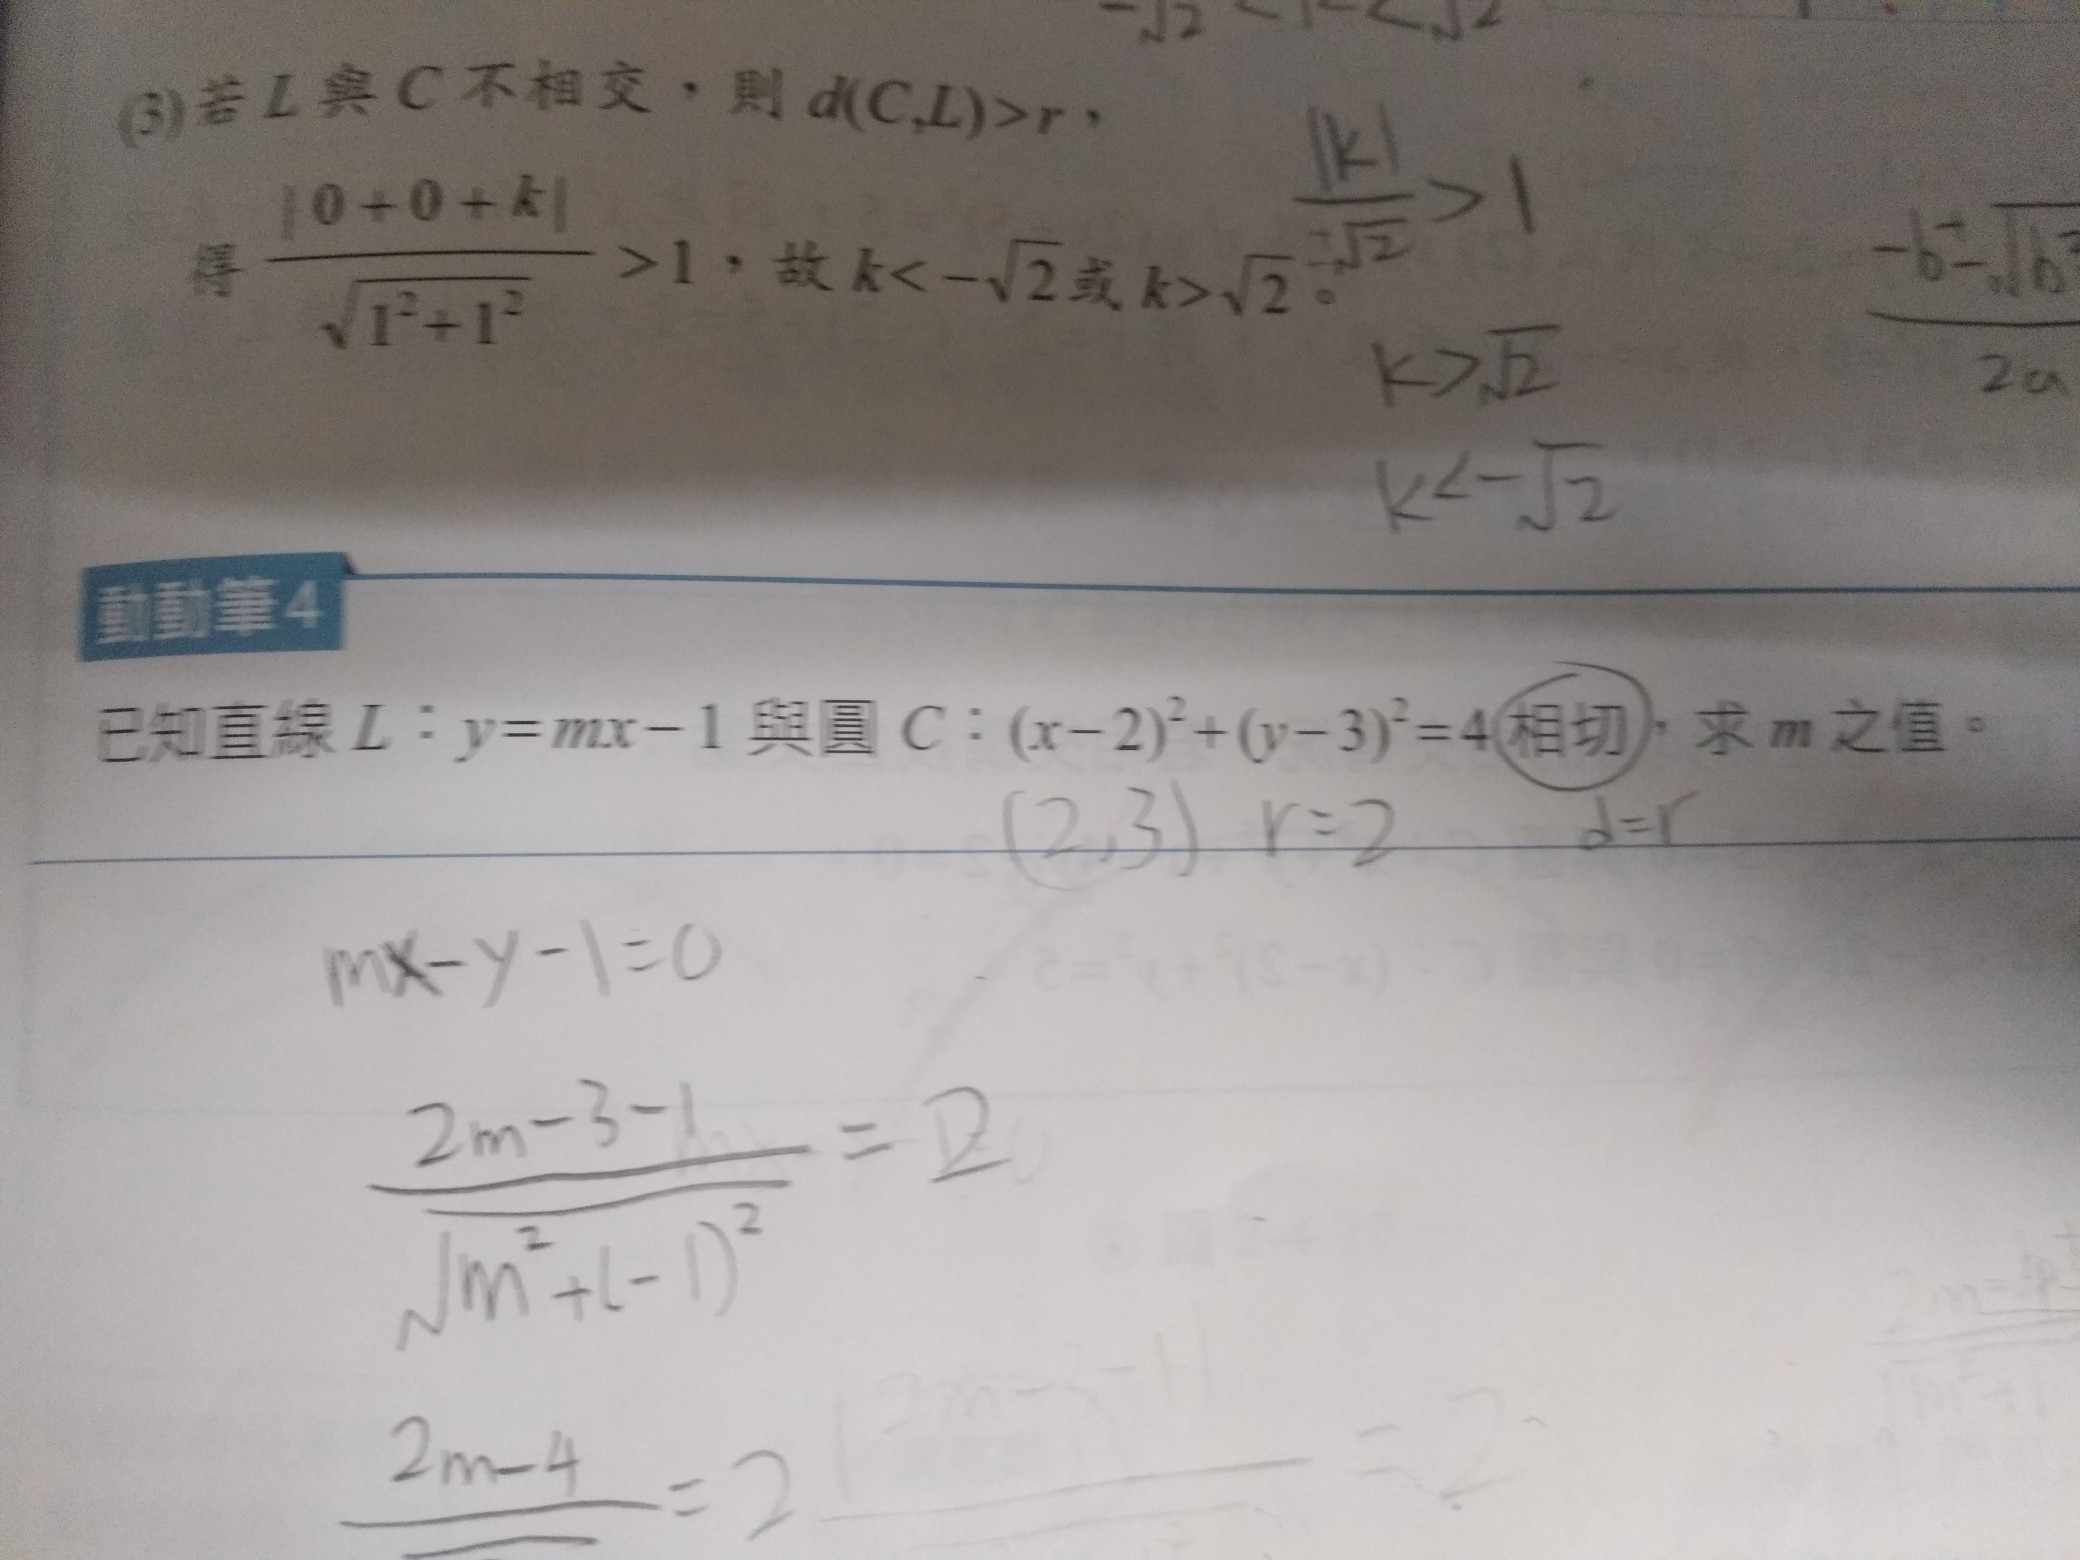 -√2 < k < √2
(3)若 L 與 C 不相交,則 d(C,L)>r,
得 |0+0+k| / √(1²+1²) >1,故 k<-√2或 k>√2。
|k| / √2 > 1
k>√2
k<-√2
-b±√b²
2a
動動筆4
已知直線 L:y=mx-1 與圓 C:(x-2)²+(y-3)²=4相切,求 m 之值。
(2,3) r=2 d=r
mx-y-1=0
2m-3-1 / √m²+(-1)² = 2
2m-4 = 2